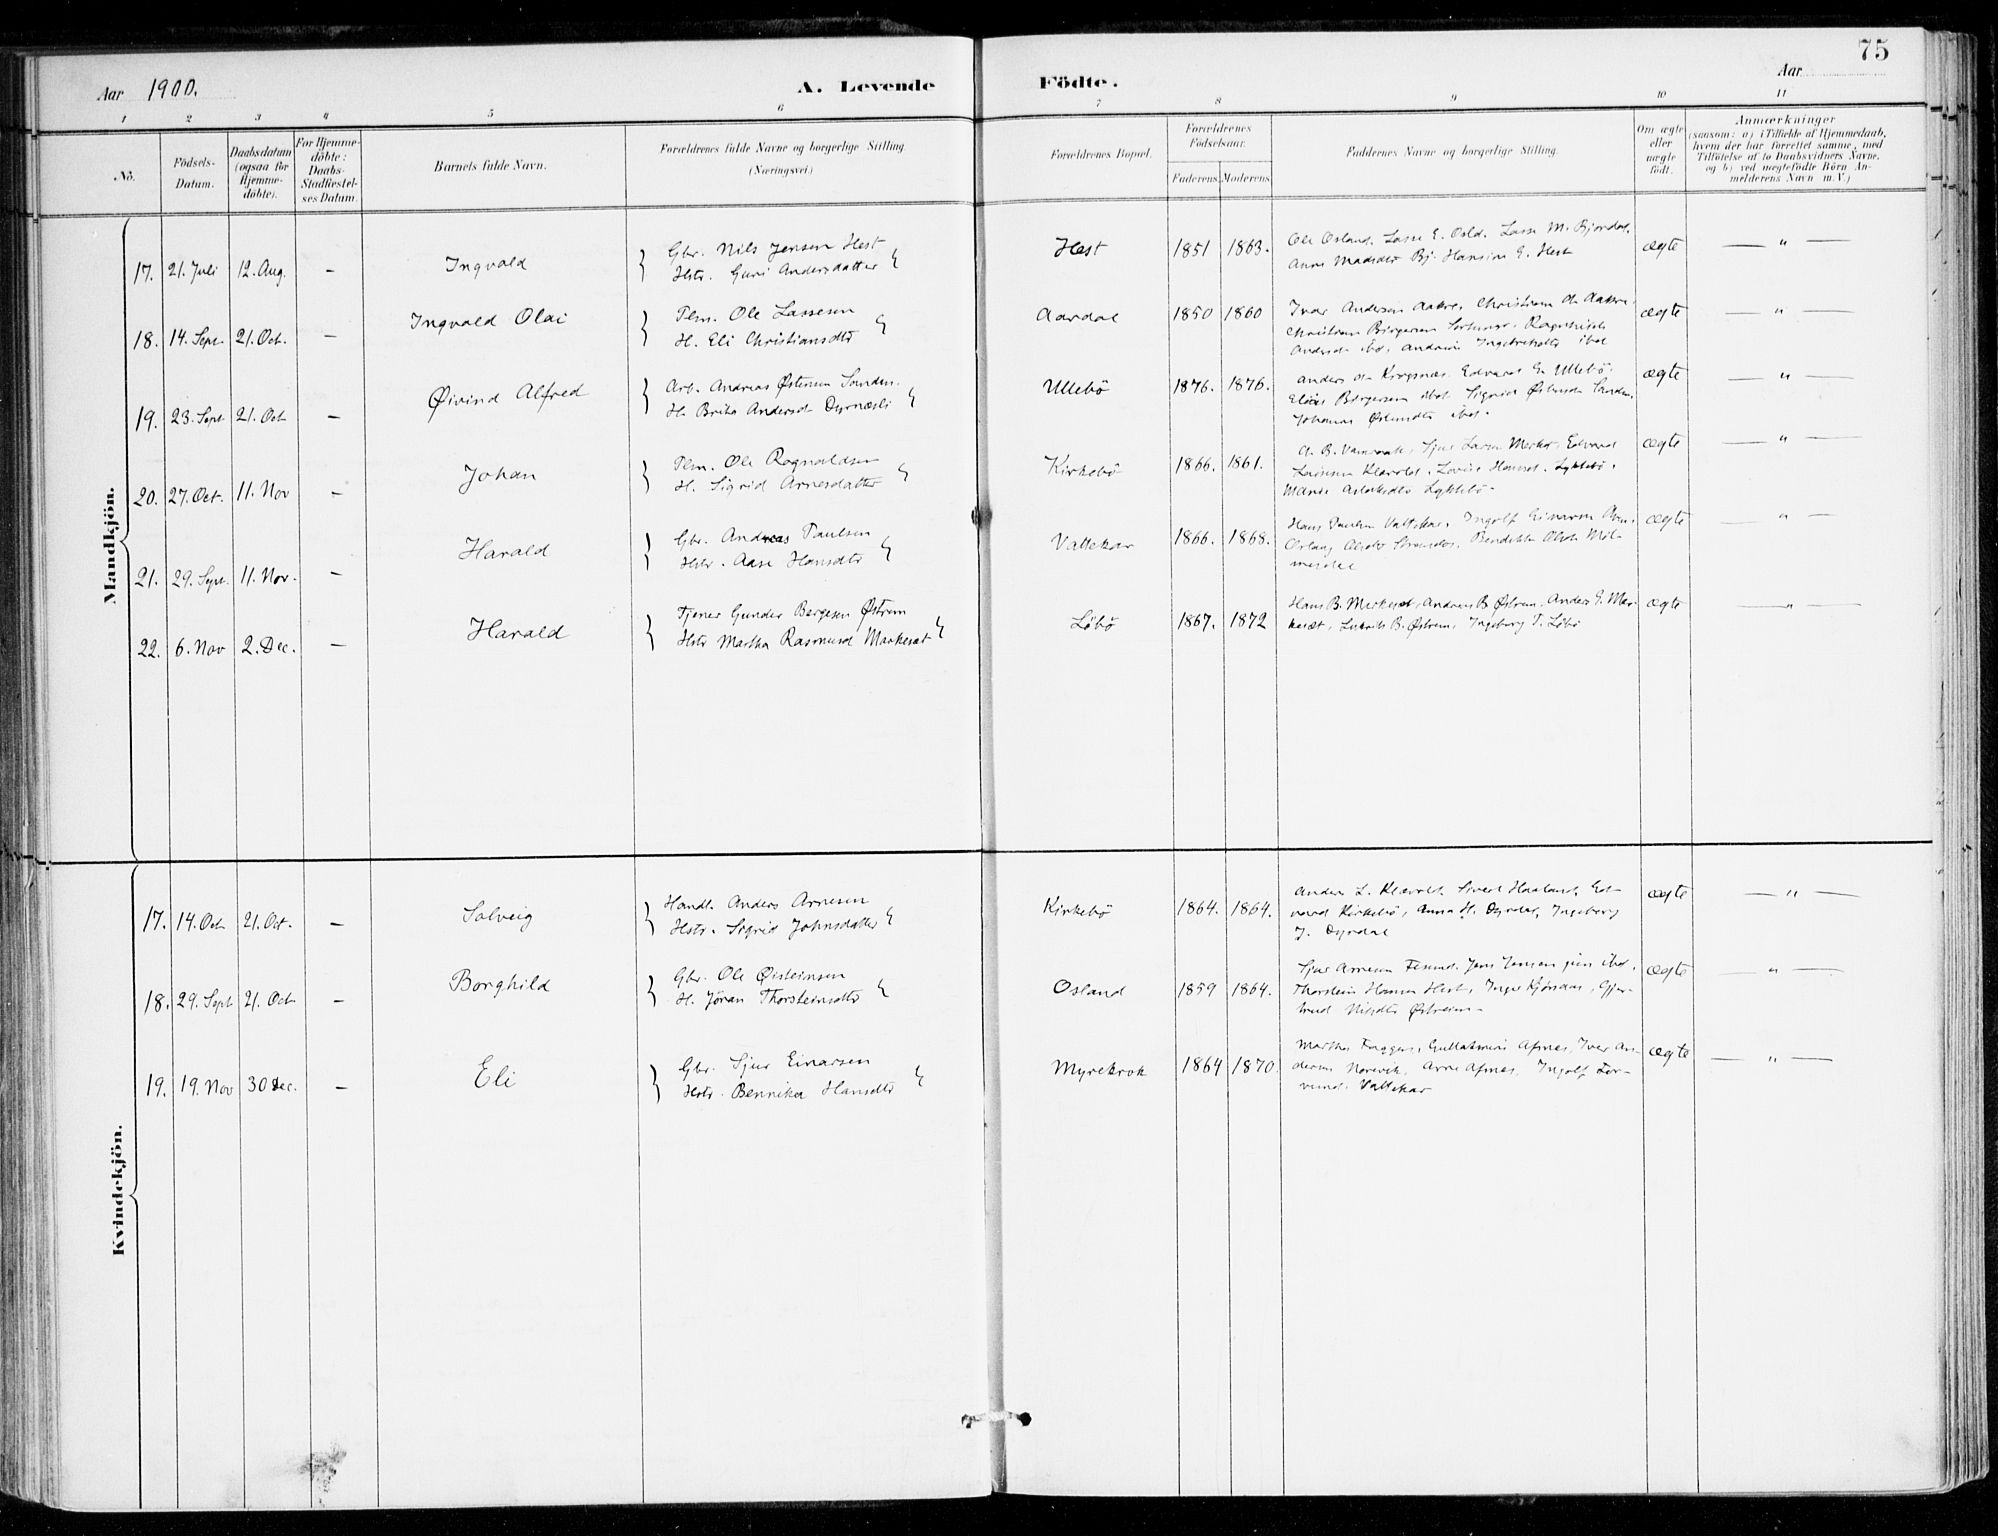 75
Aar 1900.
A. Levende Födte.
Aar
1 2 3 4 5 6 7 8 9 10 11
No.
Födsels-Datum.
Daabsdatum (ogsaa for Hjemmedöbte).
For Hjemmedöbte: Daabs-Stadfæstelses Datum.
Barnets fulde Navn.
Forældrenes fulde Navne og borgerlige Stilling.
(Næringsvei.)
Forældrenes Bopæl.
Forældrenes Födselsaar.
Faderens Moderens
Faddernes Navne og borgerlige Stilling.
Om ægte eller uægte födt.
Anmærkninger
(saasom: a) i Tilfælde af Hjemmedaab, hvem der har forrettet samme, med Tilföielse af to Daabsvidners Navne, og b) ved uægtefödte Börn Anmelderens Navn m. V.)
Mandkjön.
17. 21. Juli 12. Aug. – Ingvald
Gbr. Nils Jensen Hest
Hstr. Guri Andersdatter
Hest 1851 1863.
Ole Osland. Lasse E. Osld. Lasse M. Bjordal.
Anne Madsdtr Bj. Hansine E. Hest
ægte — " —
18. 14. Sept. 21. Oct. – Ingvald Olai
Plm. Ole Lassesen
H. Eli Christiansdtr
Aardal 1850 1860
Ivar Andersen Aakre, Christian
Christian Börgesen
ibd, Andrine ibd
ægte — " —
19. 23. Sept 21. Oct – Øivind Alfred
Arb. Andreas Østensen Sanden.
H. Brita Andersd. Dyrnæsli
Ullebö 1876. 1876.
Anders Edvard E. Ullebö.
Börgesen ibd. Sigrid Sanden.
Johanne ibd.
ægte — " —
20. 27. Oct. 11. Nov – Johan
Plm. Ole Ragnvaldsen
H. Sigrid Arnesdatter
Kirkebö 1866. 1861.
Sjur Larsen Edvard
Lovise Lyklebö.
Lyklebö.
ægte — " —
21. 29. Sept. 11. Nov. – Harald
Gbr. Andreas Paulsen
Hstr. Aase Hansdtr
Vattekar 1866. 1868.
Hans Paulsen Vattekar, Ingolf Einarsen
Bendikte Olsdt.
ægte — " —
22. 6. Nov 2. Dec. – Harald
Tjener Gunder Bergesen Østrem
Hstr Martha Rasmusd Markesæt
Löbö 1867. 1872
Hans B. Merkesæt, Andreas B Østrem, Anders E. Mar-
kesæt, Ludvik B. Østrem, Ingeborg T. Löbö
ægte — " —
Kvindekjön.
17. 14. Oct 21. Oct. – Solveig
Handl. Anders Arnesen
Hstr. Sigrid Johnsdatter
Kirkebö 1864. 1864.
Anders L. Klævold, Sivert Haaland, Ed-
vard Kirkebö, Anna H. Dyrdal, Ingeborg
J. Dyrdal
ægte — " —
18. 29. Sept 21. Oct – Borghild
Gbr. Ole Øisteinsen
H. Jöran Thorsteinsdtr
Osland 1859 1864.
Sjur Arnesen Jens Jensen jun ibd.
Thorstein Hansen Hest, Inger Gjer-
trud Nilsdtr Østreim
ægte — " —
19. 19. Nov 30 Dec. – Eli
Gbr. Sjur Einarsen
Hstr. Bennika Hansdtr
Myrekrok 1864 1870.
Martha Afnes, Iver An-
dersen Norevik, Arne Afnes, Ingolf
Vattekar
ægte — " —